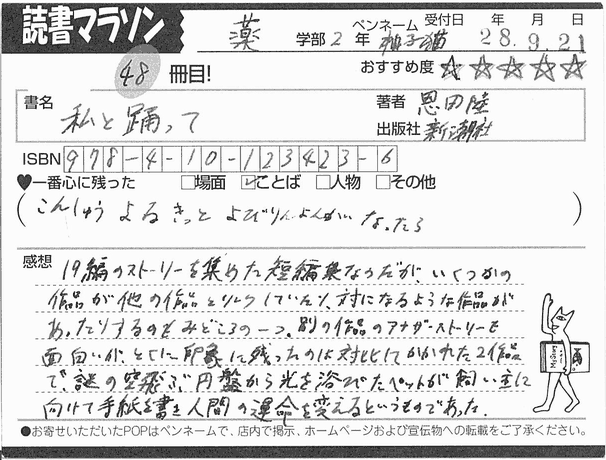 読書マラソン
薬 学部 2 年 ペンネーム 柚子猫 受付日 年 月 日 28. 9. 21
48 冊目! おすすめ度 ☆☆☆☆☆
書名 私と踊って
著者 恩田陸
出版社 新潮社
ISBN 978-4-10-123423-6
♥一番心に残った □場面 ☑ことば □人物 □その他
(こんしゅう よる きっと よびりんよんかい なったら)
感想
19編のストーリーを集めた短編集なのだが、いくつかの
作品が他の作品とリンクしていたり、対になるような作品が
あったりするのもみどころの一つ。別の作品のアナザーストーリーも
面白いが、とくに印象に残ったのは対比してかかれた2作品
で、謎の空飛ぶ円盤から光を浴びたペットが飼い主に
向けて手紙を書き人間の運命を変えるというものであった。
●お寄せいただいたPOPはペンネームで、店内で掲示、ホームページおよび宣伝物への転載をご了承ください。